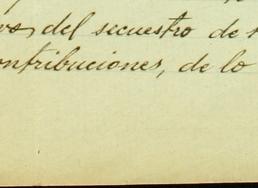 del secuestro de
contribuciones, de lo